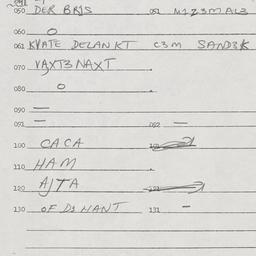 050 DER BRJS 051 M1Z3MAL3
060 O
061 KVATE DELANKT C3M SAND3K
070 VAXT3NAXT
080 O
090 —
091 — 092 —
100 CACA
110 HAM
120 AJTA 121
130 OF D3 HANT 131 -